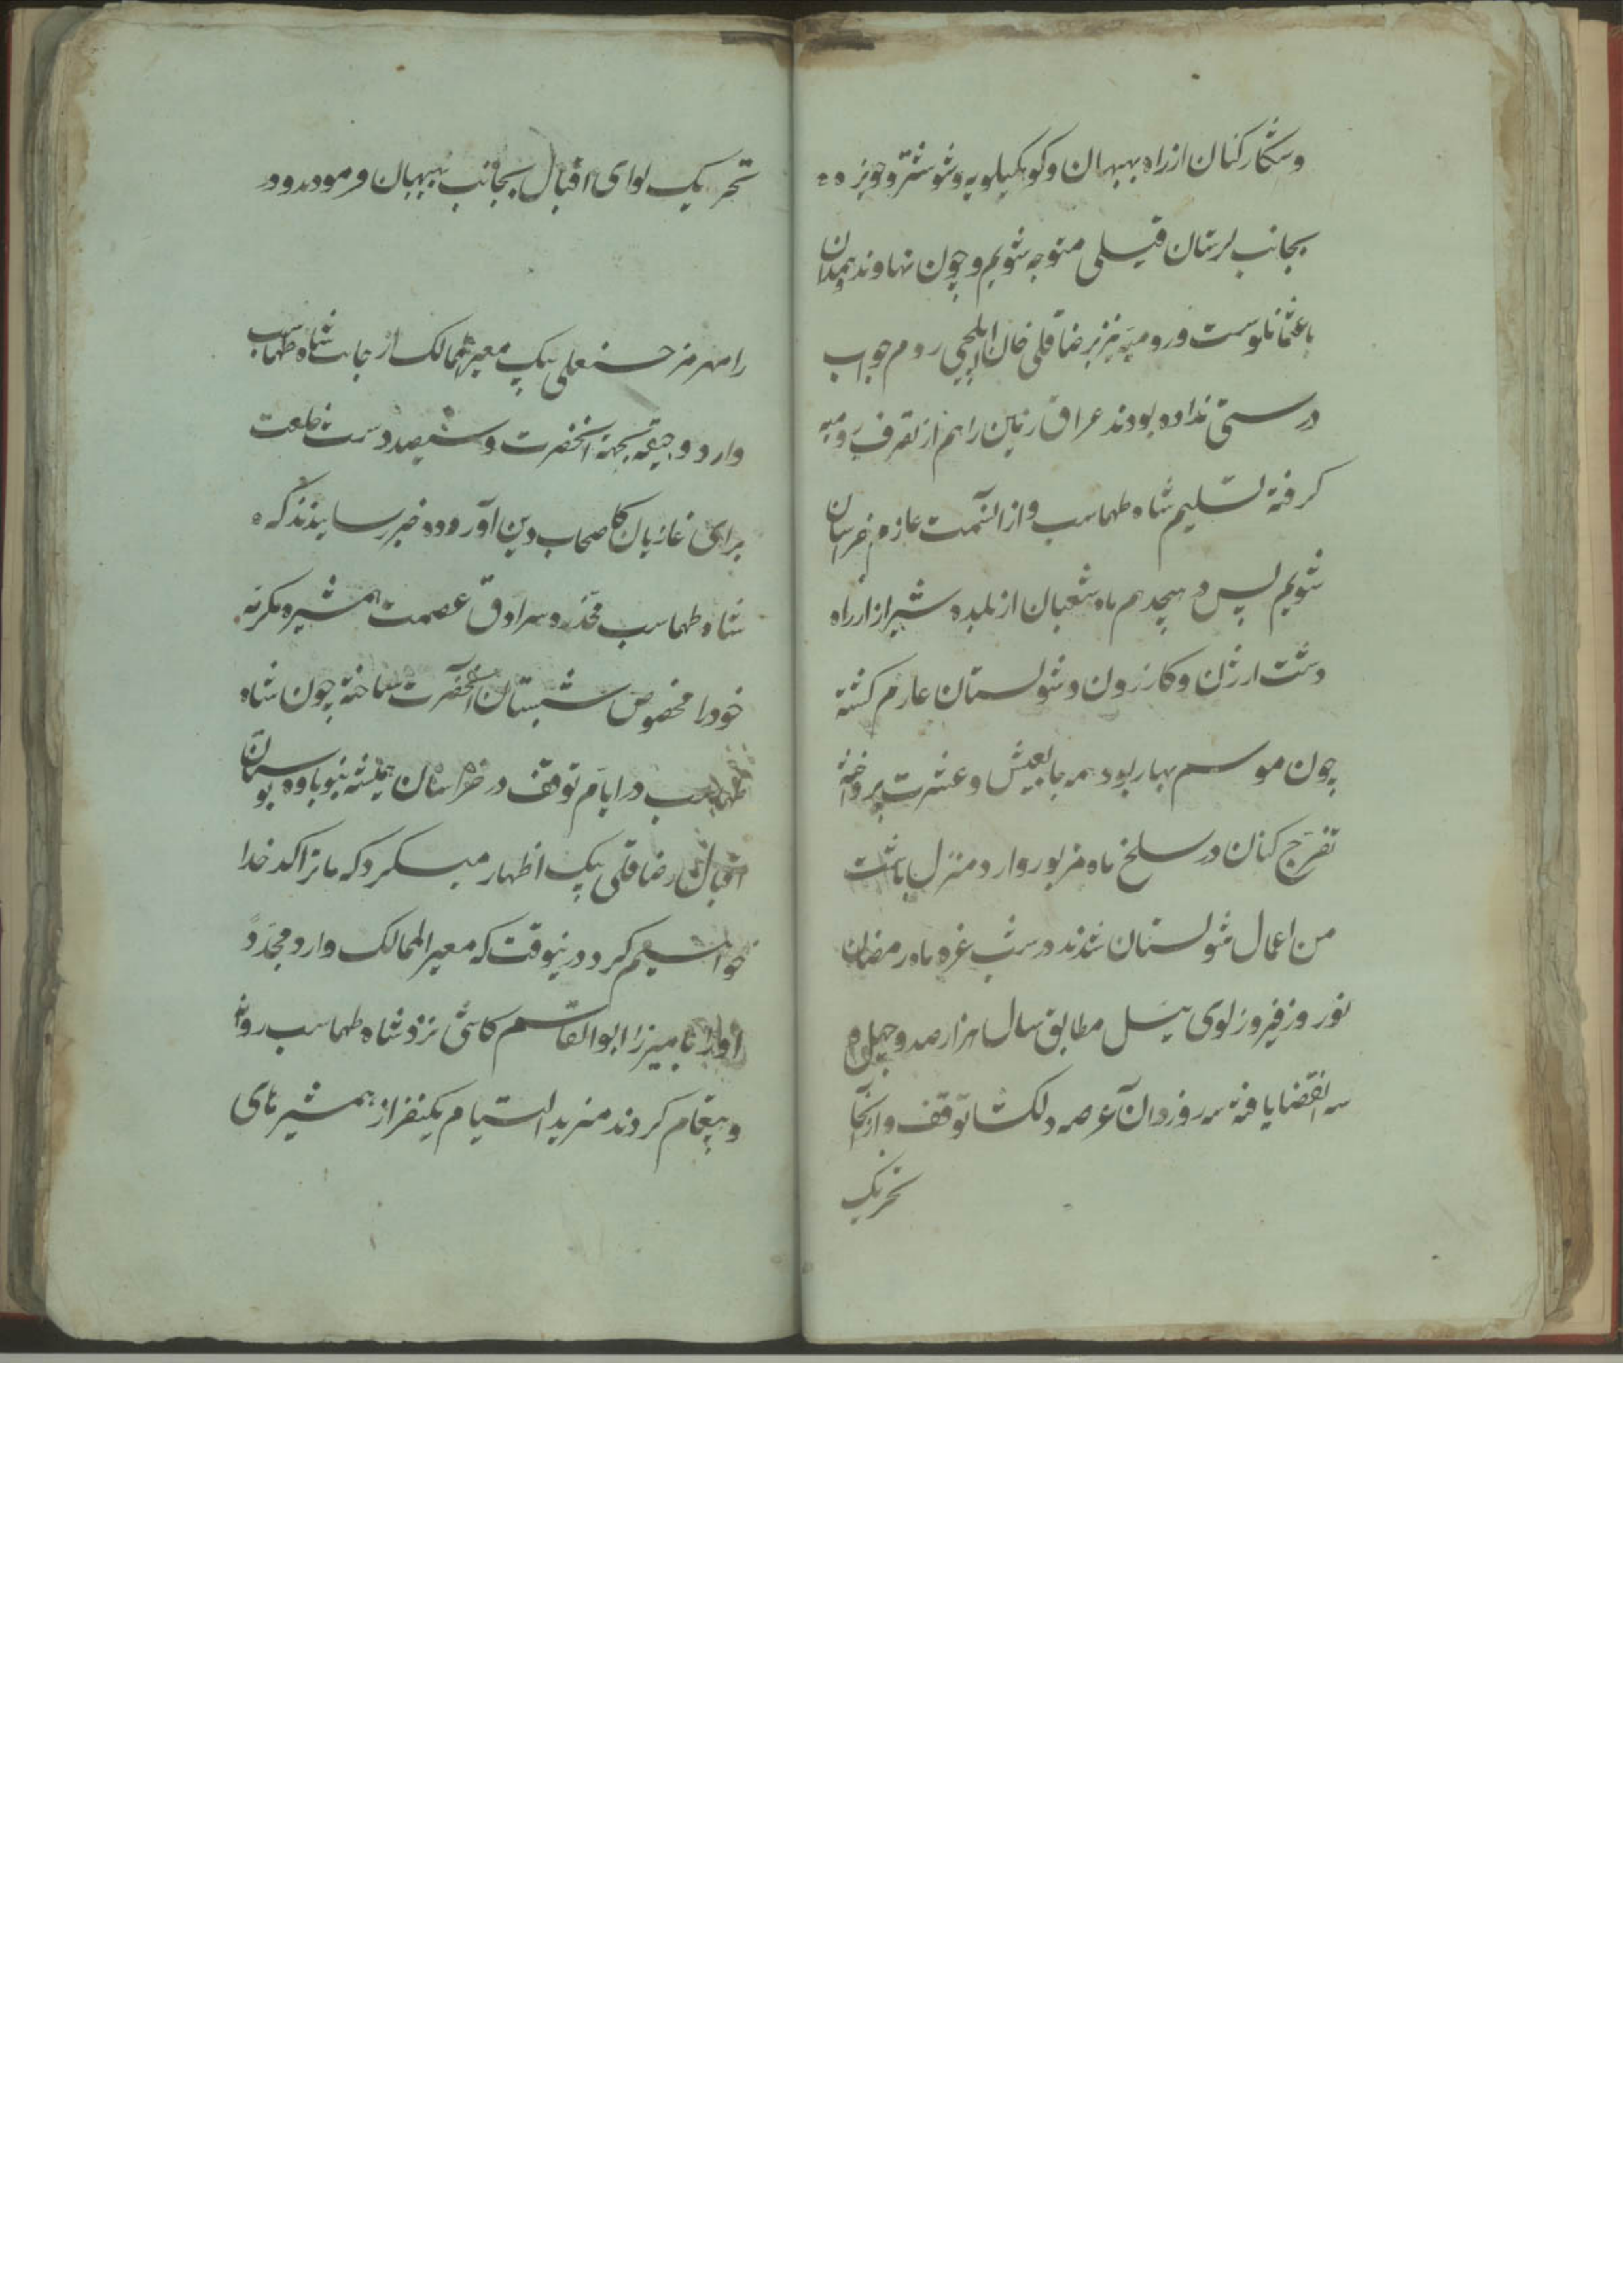 وشکار کنان از راه بهبهان و کوهکیلویه و شوشتر و حویزه
بجانب لرستان فیلی متوجه شویم و چون نهاوند و همدان
با عثمانلوست و رومیه نیز برضا قلی خان ایلچی روم جواب
درستی نداده بودند عراق زمین را هم از تصرف رومیه
گرفته تسلیم شاه طهماسب و از آنسمت عازم خراسان
شویم پس در هیجدهم ماه شعبان از بلده شیراز از راه
دشت ارژن و کازرون و شولستان عازم کشته
چون موسم بهار بود همه جا بعیش و عشرت پرداخته
تفرج کنان در سلخ ماه مزبور وارد منزل باشت
من اعمال شولستان شدند در شب غره ماه رمضان
نوروز فیروز لوی ئیل مطابق سال هزار صد و چهل و
سه انقضا یافته سه روز در آن عرصه دلکشا توقف و از آنجا
تحریک
تحریک لوای اقبال بجانب بهبهان فرمودند و در
رامهرمز حسنعلی بیک معیر الممالک از جانب شاه طهماسب
وارد و جیقه بجهة آنحضرت و سیصد دست خلعت
برای غازیان کاصحاب دین آورده خبر رسانیدند که
شاه طهماسب مخدره سرادق عصمت همشیره مکرمه
خود را مخصوص شبستان آنحضرت ساخته چون شاه
طهماسب در ایام توقف در خراسان همیشه بنوباوه بوستان
اقبال رضا قلی بیک اظهار میکرد که ما ترا کدخدا
خواهیم کرد درینوقت که معیر الممالک وارد مجدد
او را با میرزا ابوالقاسم کاشی نزد شاه طهماسب روانه
و پیغام کردند مزید التیام یکنفر از همشیرهای